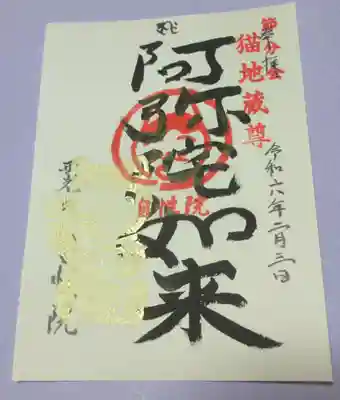 節分会
奉拝
猫地蔵尊
令和六年二月三日
阿弥陀如来
自性院
院